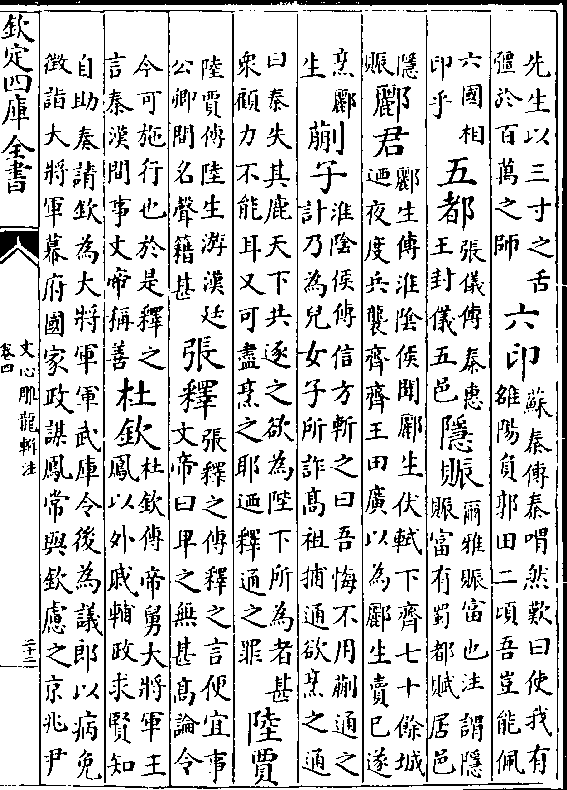 先生以三寸之舌
彊於百萬之師
六印
蘇秦傳秦喟然歎曰使我有
雒陽負郭田二頃吾豈能佩
六國相
印乎
五都
張儀傳秦惠
王封儀五邑
隱賑
爾雅賑富也注謂隱
賑富有蜀都賦居邑
隱
賑
酈君
酈生傳淮陰侯聞酈生伏軾下齊七十餘城
迺夜度兵襲齊齊王田廣以為酈生賣已遂
烹酈
生
蒯子
淮陰侯傳信方斬之曰吾悔不用蒯通之
計乃為兒女子所詐高祖捕通欲烹之通
曰秦失其鹿天下共逐之欲為陛下所為者甚
衆顧力不能耳又可盡烹之耶迺釋通之罪
陸賈
陸賈傳陸生游漢廷
公卿間名聲籍甚
張釋
張釋之傳釋之言便宜事
文帝曰卑之無甚高論令
今可施行也於是釋之
言秦漢間事文帝稱善
杜欽
杜欽傳帝舅大將軍王
鳳以外戚輔政求賢知
自助奏請欽為大將軍軍武庫令後為議郎以病免
徵詣大將軍幕府國家政謀鳳常與欽慮之京兆尹
欽定四庫全書
文心雕龍輯注
卷四
二十三